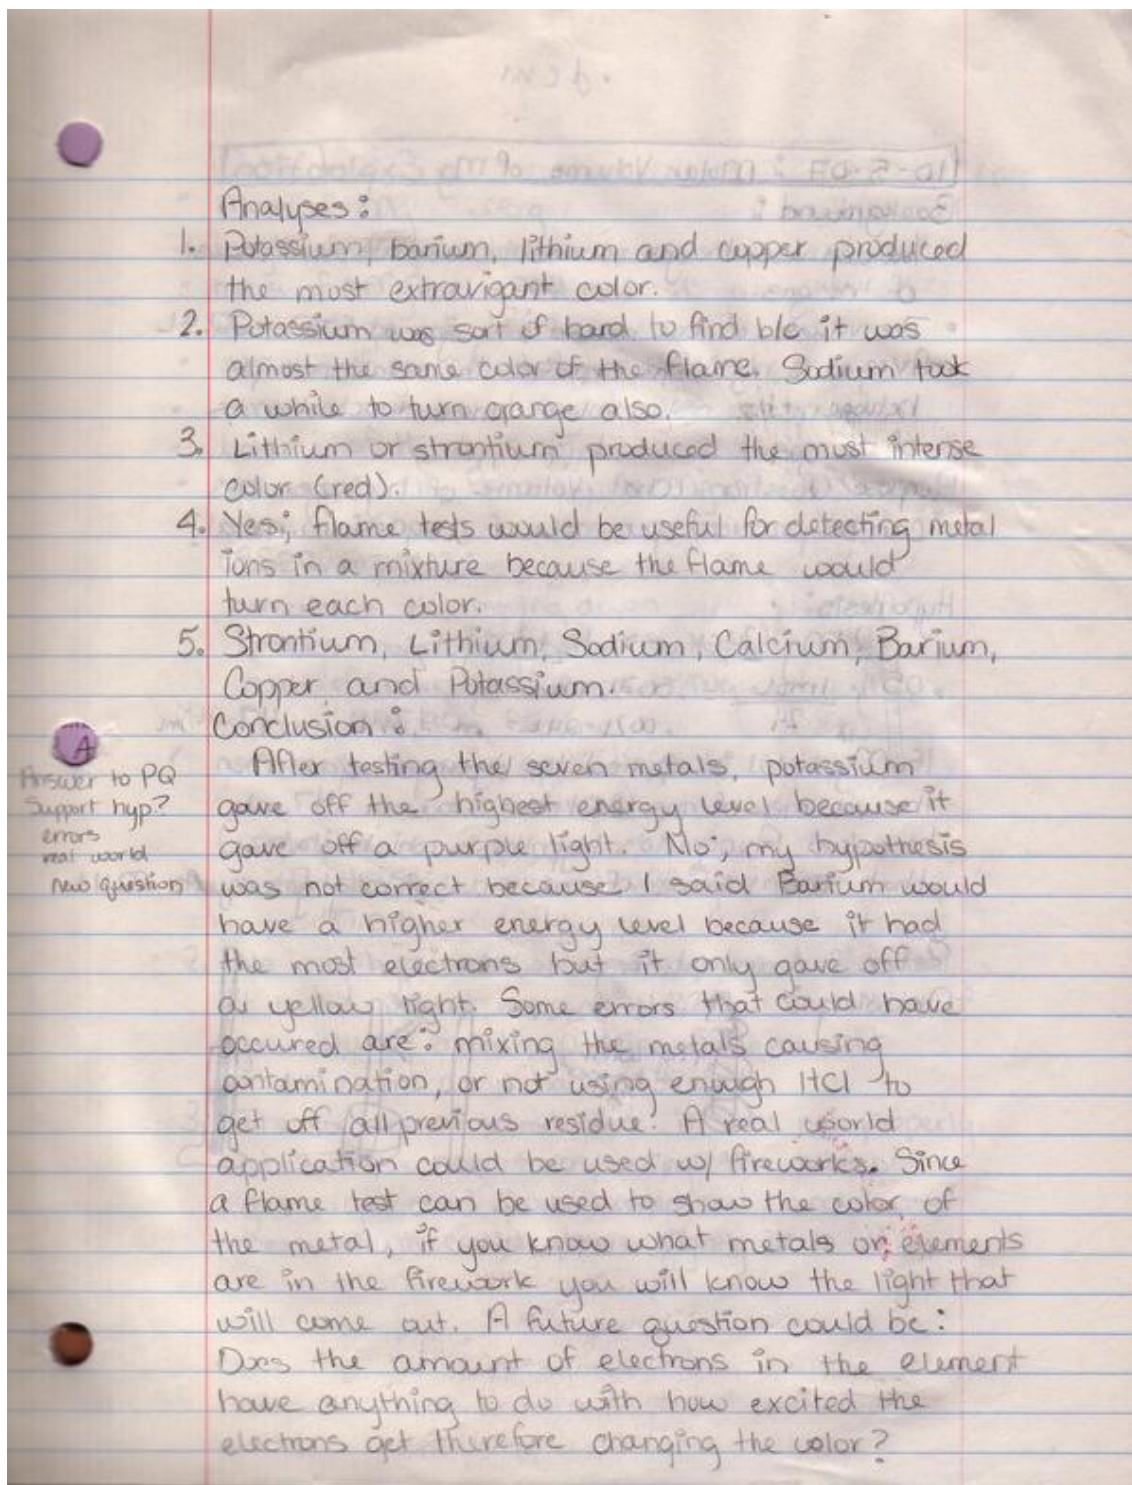 Analyses:
1. Potassium, barium, lithium and copper produced
the most extravigant color.
2. Potassium was sort of hard to find b/c it was
almost the same color of the flame. Sodium took
a while to turn orange also.
3. Lithium or strontium produced the most intense
color (red).
4. Yes; flame tests would be useful for detecting metal
ions in a mixture because the flame would
turn each color.
5. Strontium, Lithium, Sodium, Calcium, Barium,
Copper and Potassium.
Conclusion:
A
Answer to PQ
Support hyp?
errors
real world
new question
After testing the seven metals, potassium
gave off the highest energy level because it
gave off a purple light. No; my hypothesis
was not correct because I said Barium would
have a higher energy level because it had
the most electrons but it only gave off
a yellow light. Some errors that could have
occured are: mixing the metals causing
contamination, or not using enough HCl to
get off all previous residue. A real world
application could be used w/ fireworks. Since
a flame test can be used to show the color of
the metal, if you know what metals or elements
are in the firework you will know the light that
will come out. A future question could be:
Does the amount of electrons in the element
have anything to do with how excited the
electrons get therefore changing the color?